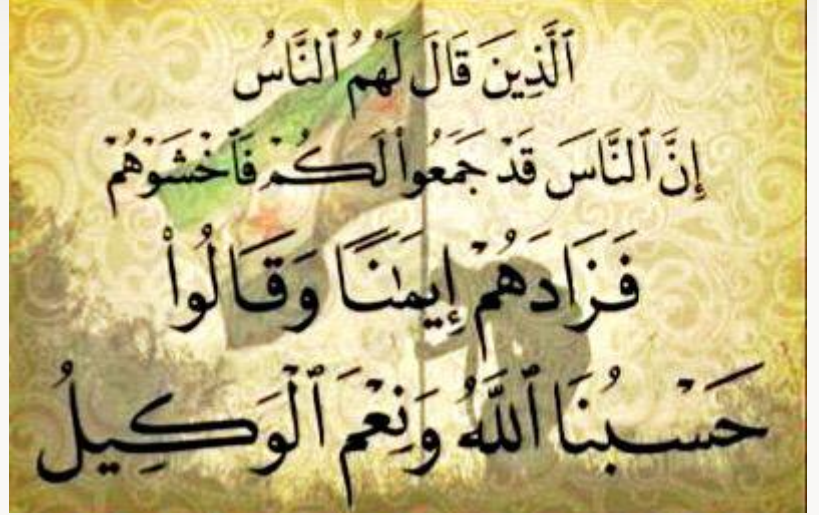 ٱلَّذِينَ قَالَ لَهُمُ ٱلنَّاسُ
إِنَّ ٱلنَّاسَ قَدۡ جَمَعُواْ لَكُمۡ فَٱخۡشَوۡهُمۡ
فَزَادَهُمۡ إِيمَٰنٗا وَقَالُواْ
حَسۡبُنَا ٱللَّهُ وَنِعۡمَ ٱلۡوَكِيلُ